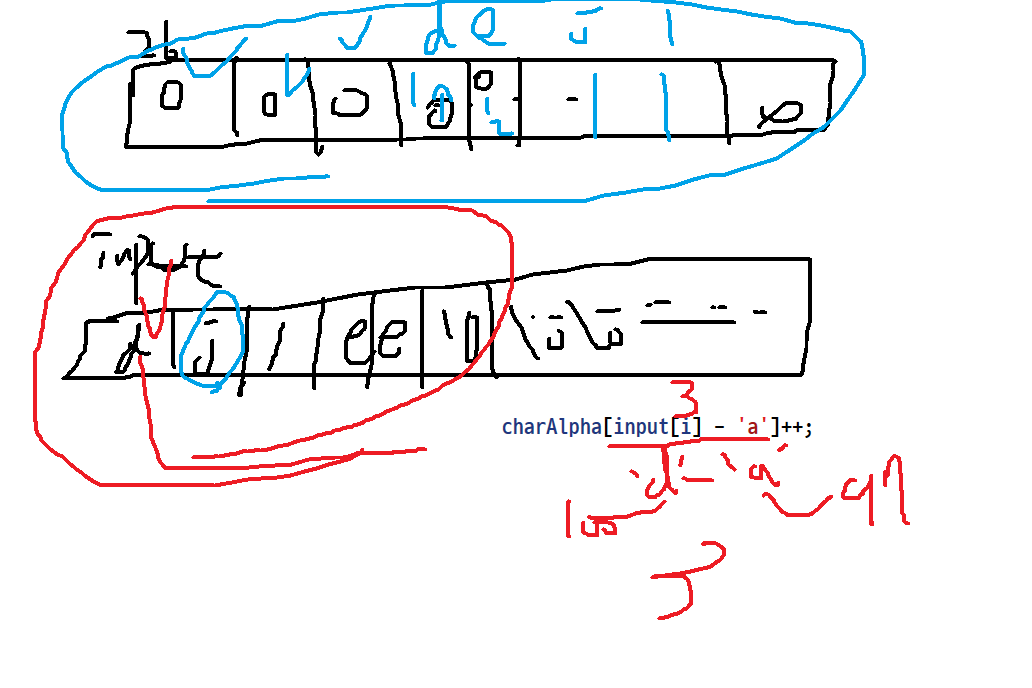 26 d e i l
0 0 0 1 0 0 2 - 0
input
d i l e e \0
3
charAlpha[input[i] - 'a']++;
'd' - 'a'
100 97
3